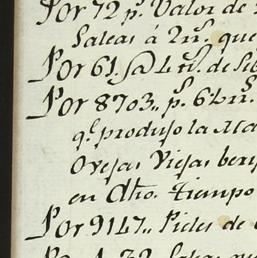 Por 72 p.s Valor de
Saleas á 2 rr.s que
Por 61,, @ 4 rr.s de Seb
Por 8703,, p.s 6½ rr.s
q.e produjo la Ma
Ovejas Viejas ben
en dho. tiempo
Por 9147,, Pieles de